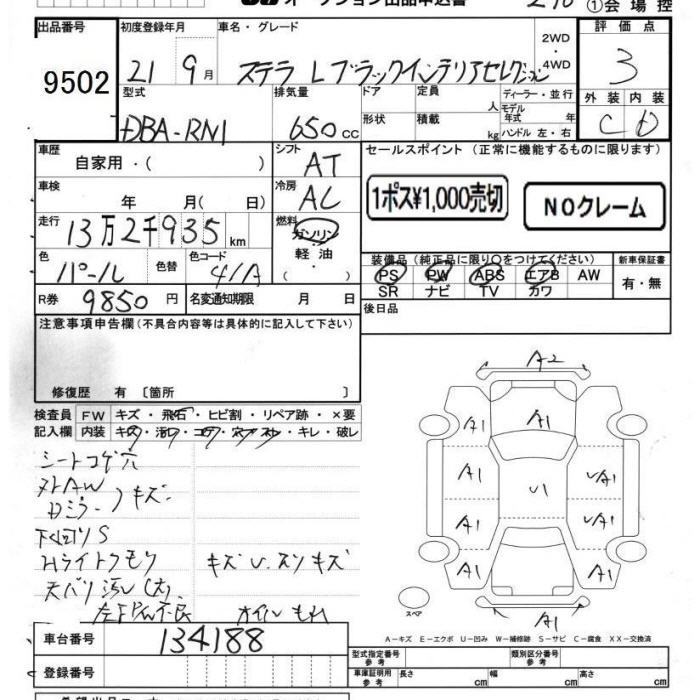 オークション出品申込書
①会場控
出品番号 初度登録年月 車名・グレード 2WD・4WD 評価点
9502 21年 9月 ステラ Lブラックインテリアセレクション 3
型式 排気量 ドア 定員 ディーラー・並行 外装 内装
人 モデル年式 年
DBA-RN1 650cc 形状 積載 kg ハンドル 左・右 C D
車歴 シフト セールスポイント (正常に機能するものに限ります)
自家用・( ) AT
1ポス¥1,000売切 NOクレーム
車検 年 月( 日) 冷房 AC
走行 13万2千935km 燃料 ガソリン・軽油・( )
装備品(純正品に限り○をつけてください) 新車保証書
色 パール 色替 色コード 41A
PS PW ABS エアB AW 有・無
SR ナビ TV カワ
R券 9850円 名変通知期限 月 日
後日品
注意事項申告欄(不具合内容等は具体的に記入して下さい)
修復歴 有 〔箇所 〕
検査員記入欄 FW キズ・飛石・ヒビ割・リペア跡・×要
内装 キズ・汚レ・コゲ・穴・スレ・キレ・破レ
シートコゲ穴
キズ
下回りS
Hライトクモリ キズU.スリキズ
天バリ汚レ(大)
左FPW不良 オイルもれ
A2
A1 A1
A1 UA1
U1
A1 UA1
A1 A1
A1
スペア
A-キズ E-エクボ U-凹み W-補修跡 S-サビ C-腐食 XX-交換済
車台番号 134188
型式指定番号 参考 類別区分番号 参考
登録番号 車庫証明用 参考 長さ cm 幅 cm 高さ cm